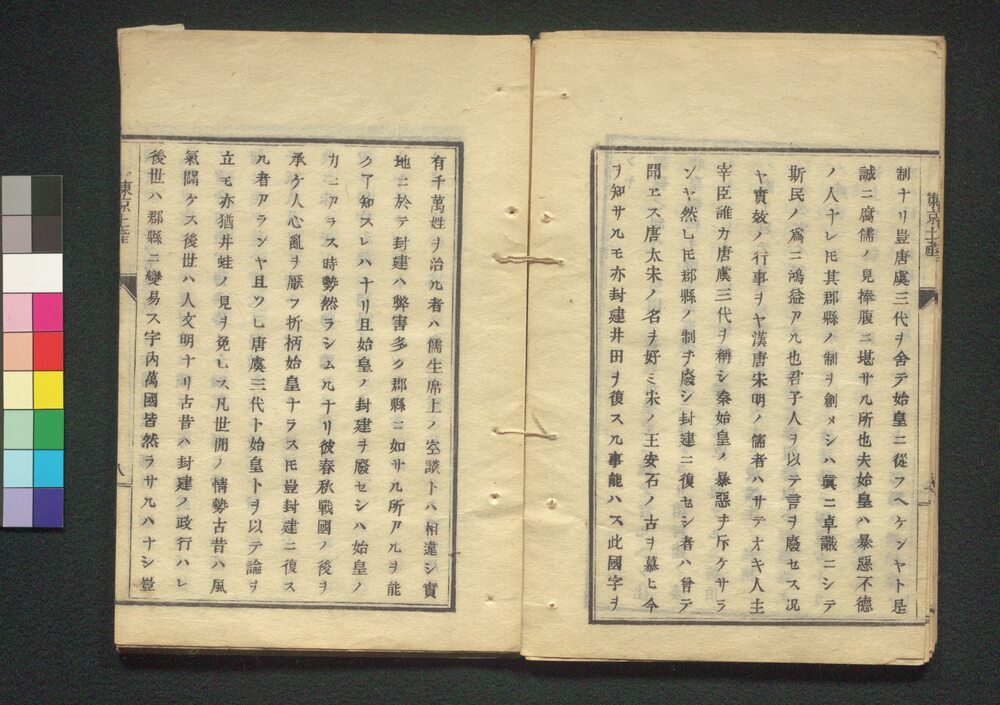 制ナリ豈唐虞三代ヲ舍テ始皇ニ從フヘケンヤト是
誠ニ腐儒ノ見捧腹ニ堪サル所也夫始皇ハ暴惡不德
ノ人ナレ𪜈其郡縣ノ制ヲ創メシハ眞ニ卓識ニシテ
斯民ノ爲ニ鴻益アル也君子人ヲ以テ言ヲ廢セス况
ヤ實效ノ行事ヲヤ漢唐宋明ノ儒者ハサテオキ人主
宰臣誰カ唐虞三代ヲ稱シ秦始皇ノ暴惡ヲ斥ケサラ
ンヤ然レ𪜈郡縣ノ制ヲ廢シ封建ニ復セシ者ハ曾テ
聞ヱス唐太宋ノ名ヲ好ミ宋ノ王安石ノ古ヲ慕ヒ今
ヲ知サルモ亦封建井田ヲ復スル事能ハス此國字ヲ
東京土產
有千萬姓ヲ治ル者ハ儒生席上ノ空談トハ相違シ實
地ニ於テ封建ハ弊害多ク郡縣ニ如サル所アルヲ能
ク了知スレハナリ且始皇ノ封建ヲ廢セシハ始皇ノ
力ニアラス時勢然ラシムルナリ彼春秋戰國ノ後ヲ
承ケ人心亂ヲ厭フ折柄始皇ナラス𪜈豈封建ニ復ス
ル者アランヤ且ツヒ唐虞三代ト始皇トヲ以テ論ヲ
立モ亦猶井蛙ノ見ヲ免レス凡世間ノ情勢古昔ハ風
氣闢ケス後世ハ人文明ナリ古昔ハ封建ノ政行ハレ
後世ハ郡縣ニ變易ス宇內萬國皆然ラサルハナシ豈
東京土產
八